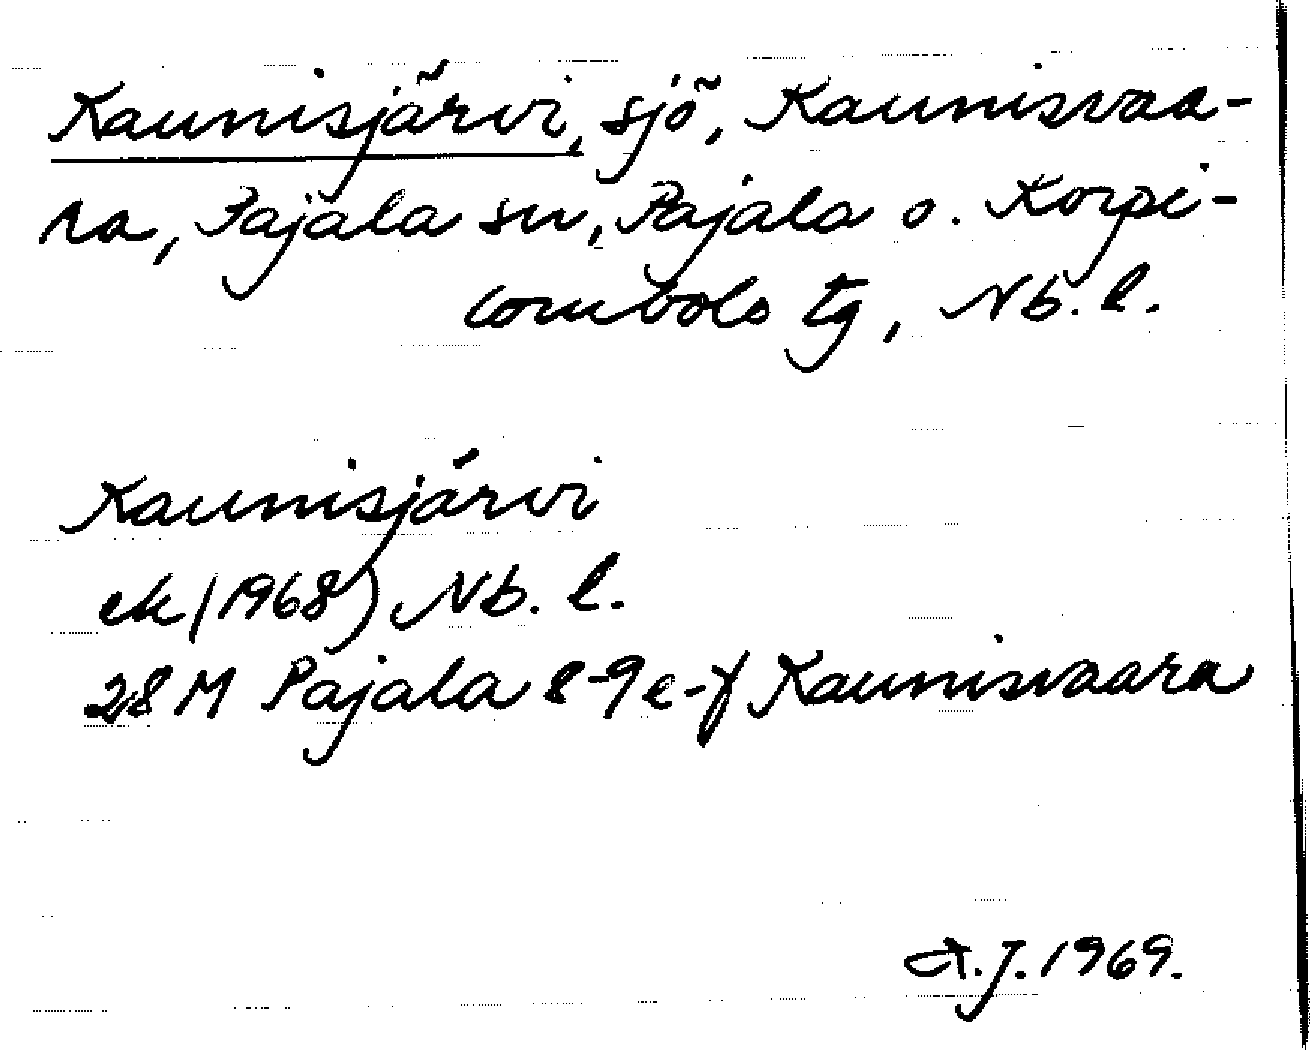 Kaunisjärvi, sjö, Kaunisvaa-
ra, Pajala sn, Pajala o. Korpi-
lombolo tg, Nb. l.
Kaunisjärvi
ek (1968) Nb. l.
28 M Pajala 8-9 e-f Kaunisvaara
A.J. 1969.